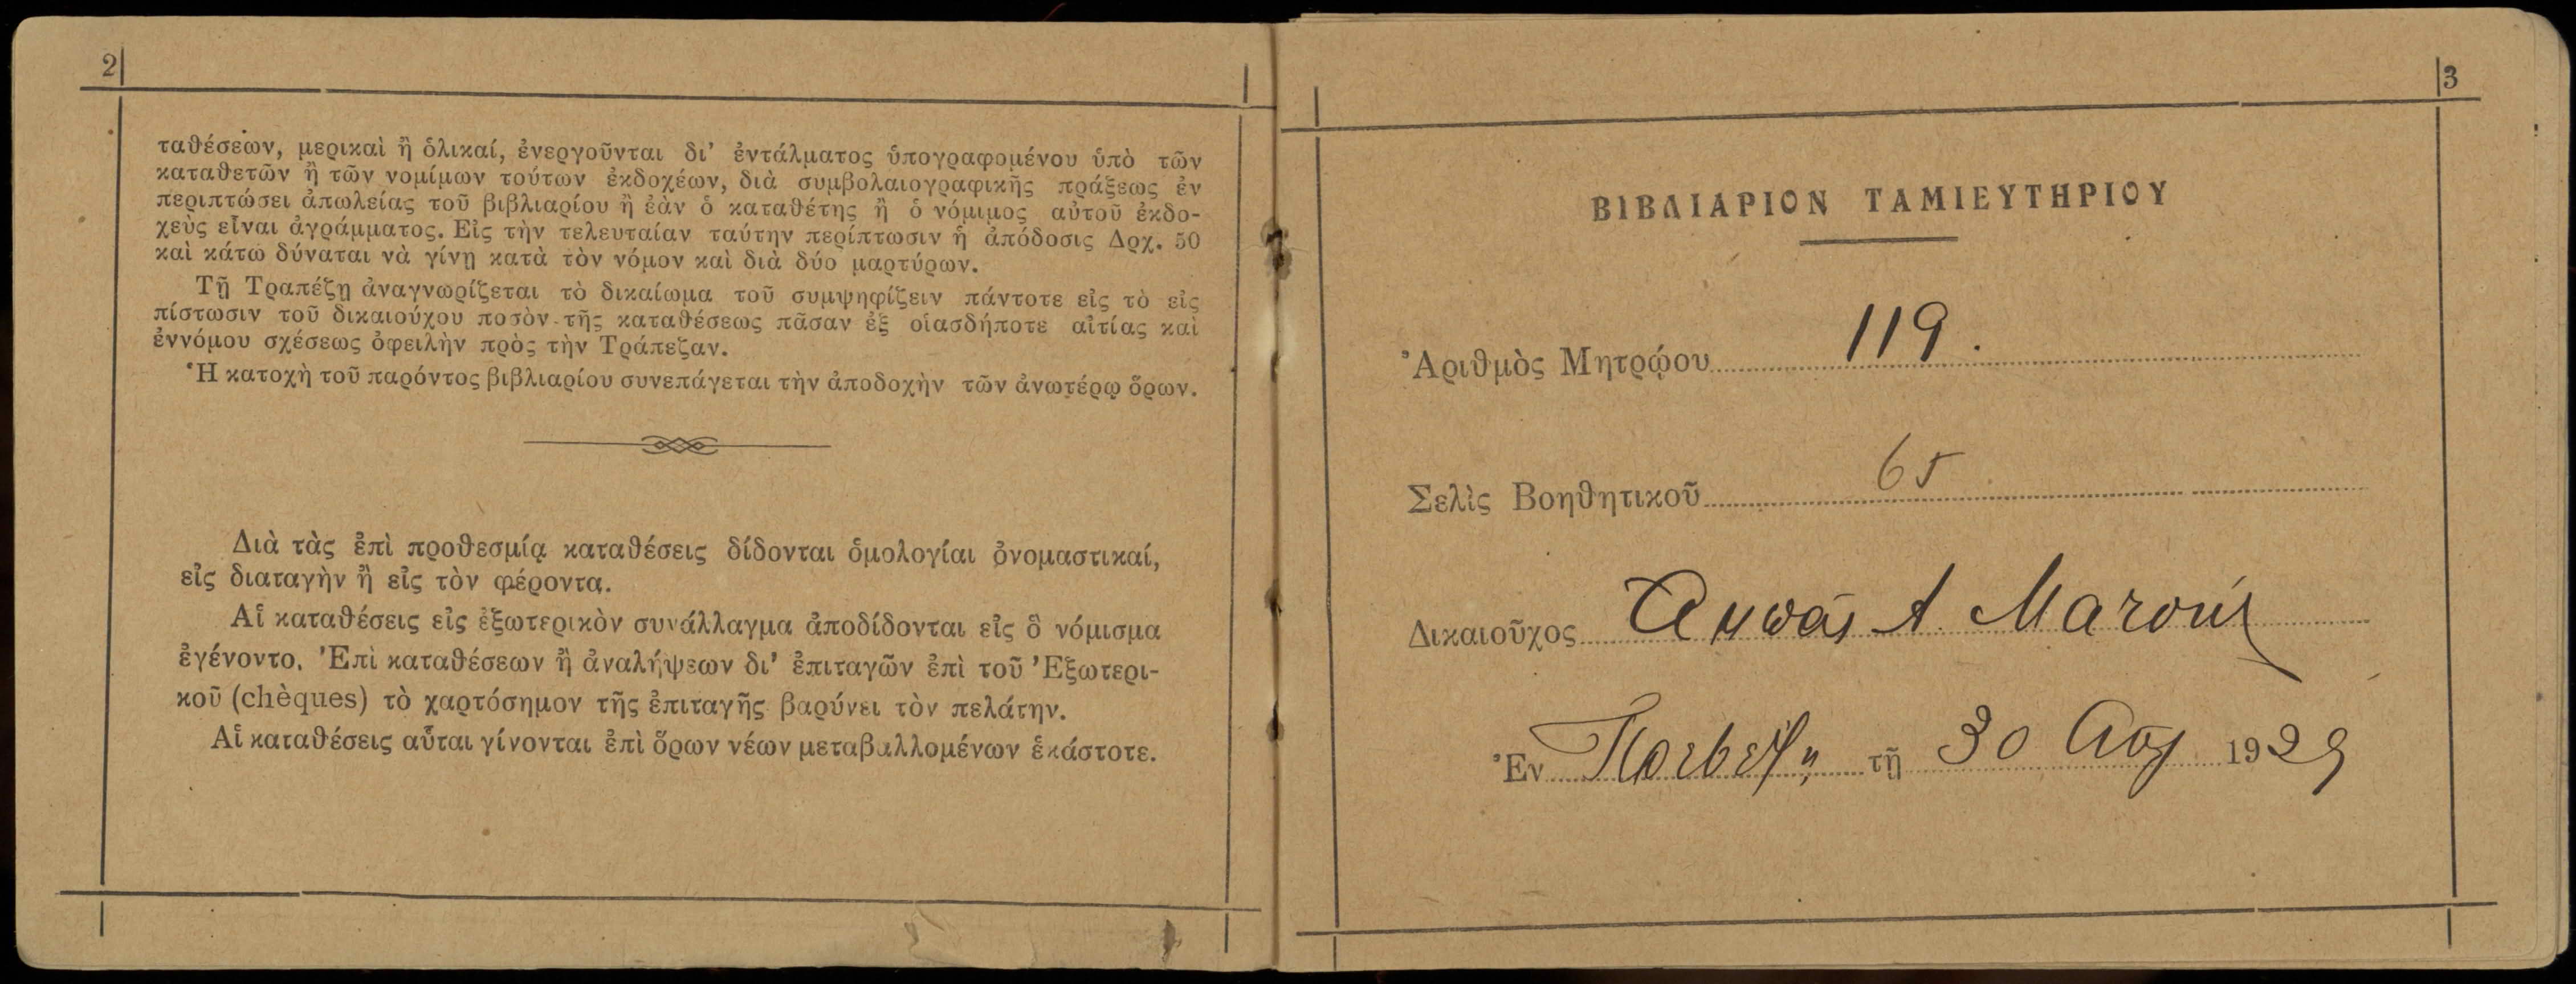 2
ταθέσεων, μερικαὶ ἢ ὁλικαί, ἐνεργοῦνται δι' ἐντάλματος ὑπογραφομένου ὑπὸ τῶν
καταθετῶν ἢ τῶν νομίμων τούτων ἐκδοχέων, διὰ συμβολαιογραφικῆς πράξεως ἐν
περιπτώσει ἀπωλείας τοῦ βιβλιαρίου ἢ ἐὰν ὁ καταθέτης ἢ ὁ νόμιμος αὐτοῦ ἐκδο-
χεὺς εἶναι ἀγράμματος. Εἰς τὴν τελευταίαν ταύτην περίπτωσιν ἡ ἀπόδοσις Δρχ. 50
καὶ κάτω δύναται νὰ γίνῃ κατὰ τὸν νόμον καὶ διὰ δύο μαρτύρων.
Τῇ Τραπέζῃ ἀναγνωρίζεται τὸ δικαίωμα τοῦ συμψηφίζειν πάντοτε εἰς τὸ εἰς
πίστωσιν τοῦ δικαιούχου ποσὸν τῆς καταθέσεως πᾶσαν ἐξ οἱασδήποτε αἰτίας καὶ
ἐννόμου σχέσεως ὀφειλὴν πρὸς τὴν Τράπεζαν.
Ἡ κατοχὴ τοῦ παρόντος βιβλιαρίου συνεπάγεται τὴν ἀποδοχὴν τῶν ἀνωτέρῳ ὅρων.
Διὰ τὰς ἐπὶ προθεσμίᾳ καταθέσεις δίδονται ὁμολογίαι ὀνομαστικαί,
εἰς διαταγὴν ἢ εἰς τὸν φέροντα.
Αἱ καταθέσεις εἰς ἐξωτερικὸν συνάλλαγμα ἀποδίδονται εἰς ὃ νόμισμα
ἐγένοντο. Ἐπὶ καταθέσεων ἢ ἀναλήψεων δι' ἐπιταγῶν ἐπὶ τοῦ Ἐξωτερι-
κοῦ (chèques) τὸ χαρτόσημον τῆς ἐπιταγῆς βαρύνει τὸν πελάτην.
Αἱ καταθέσεις αὗται γίνονται ἐπὶ ὅρων νέων μεταβαλλομένων ἑκάστοτε.
3
ΒΙΒΛΙΑΡΙΟΝ ΤΑΜΙΕΥΤΗΡΙΟΥ
Ἀριθμὸς Μητρῴου 119.
Σελὶς Βοηθητικοῦ 65
Δικαιοῦχος
Ἐν Πρεβέζῃ τῇ 30 Αὐγ 1929